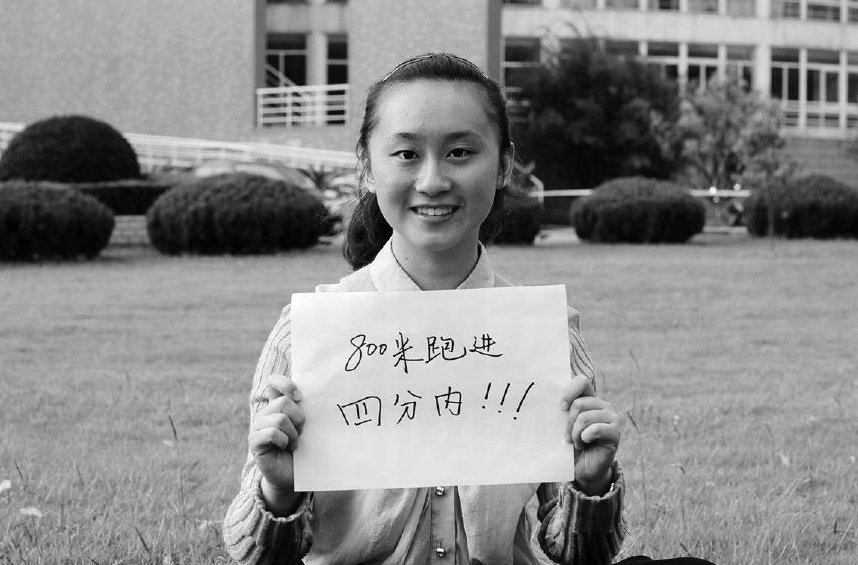 800米跑进
四分内!!!